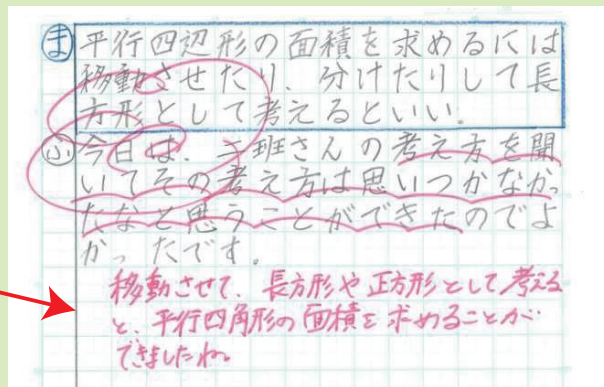 ま 平行四辺形の面積を求めるには
移動させたり、分けたりして長
方形として考えるといい。
ふ 今日は、二班さんの考え方を聞
いてその考え方は思いつかなかっ
たなと思うことができたのでよ
かったです。
移動させて、長方形や正方形として考える
と、平行四角形の面積を求めることが
できましたね。